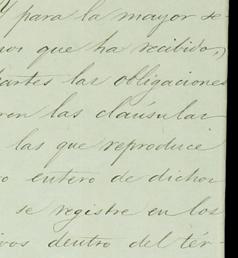 y para la mayor se-
nor que ha recibido,
partes las obligaciones
ren las cláusulas
las que reproduce
o entero de dichos
se registre en los
ivos dentro del tér-